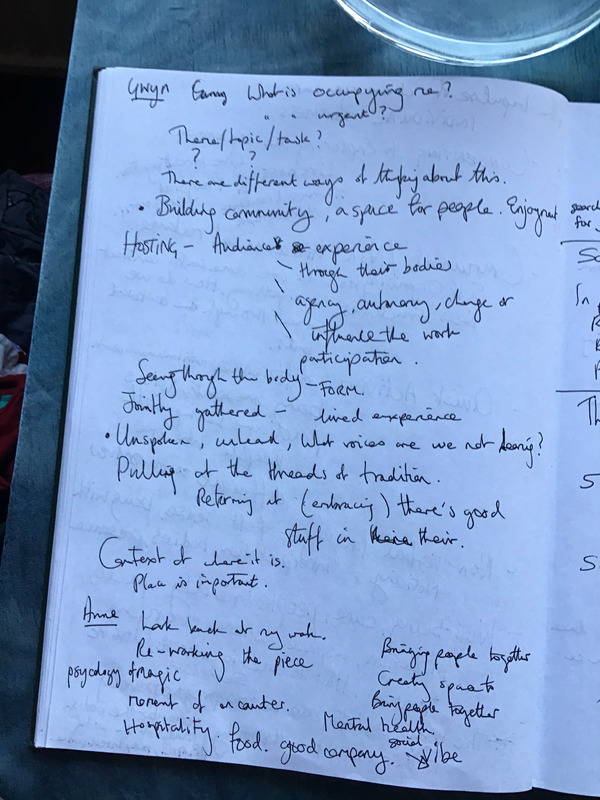 Gwyn Emmy What is occupying me?
" " urgent?
Theme/topic/task?
? ?
There are different ways of thinking about this.
• Building community, a space for people. Enjoyment
HOSTING – Audience experience
through their bodies
agency, autonomy, change or
influence the work
participation.
Seeing through the body – FORM
Jointly gathered – lived experience
• Unspoken, unheard, What voices are we not hearing?
Pulling at the threads of tradition.
Reforming it (embracing) there's good
stuff in their.
Context of where it is.
Place is important.
Anne Look back at my work.
Re-working the piece
psycology of magic
moment of encounter.
Hospitality. food. good company.
Bringing people together
Creating space to
Bring people together
Mental health
social
Vibe
search
for
In
Th
S
S